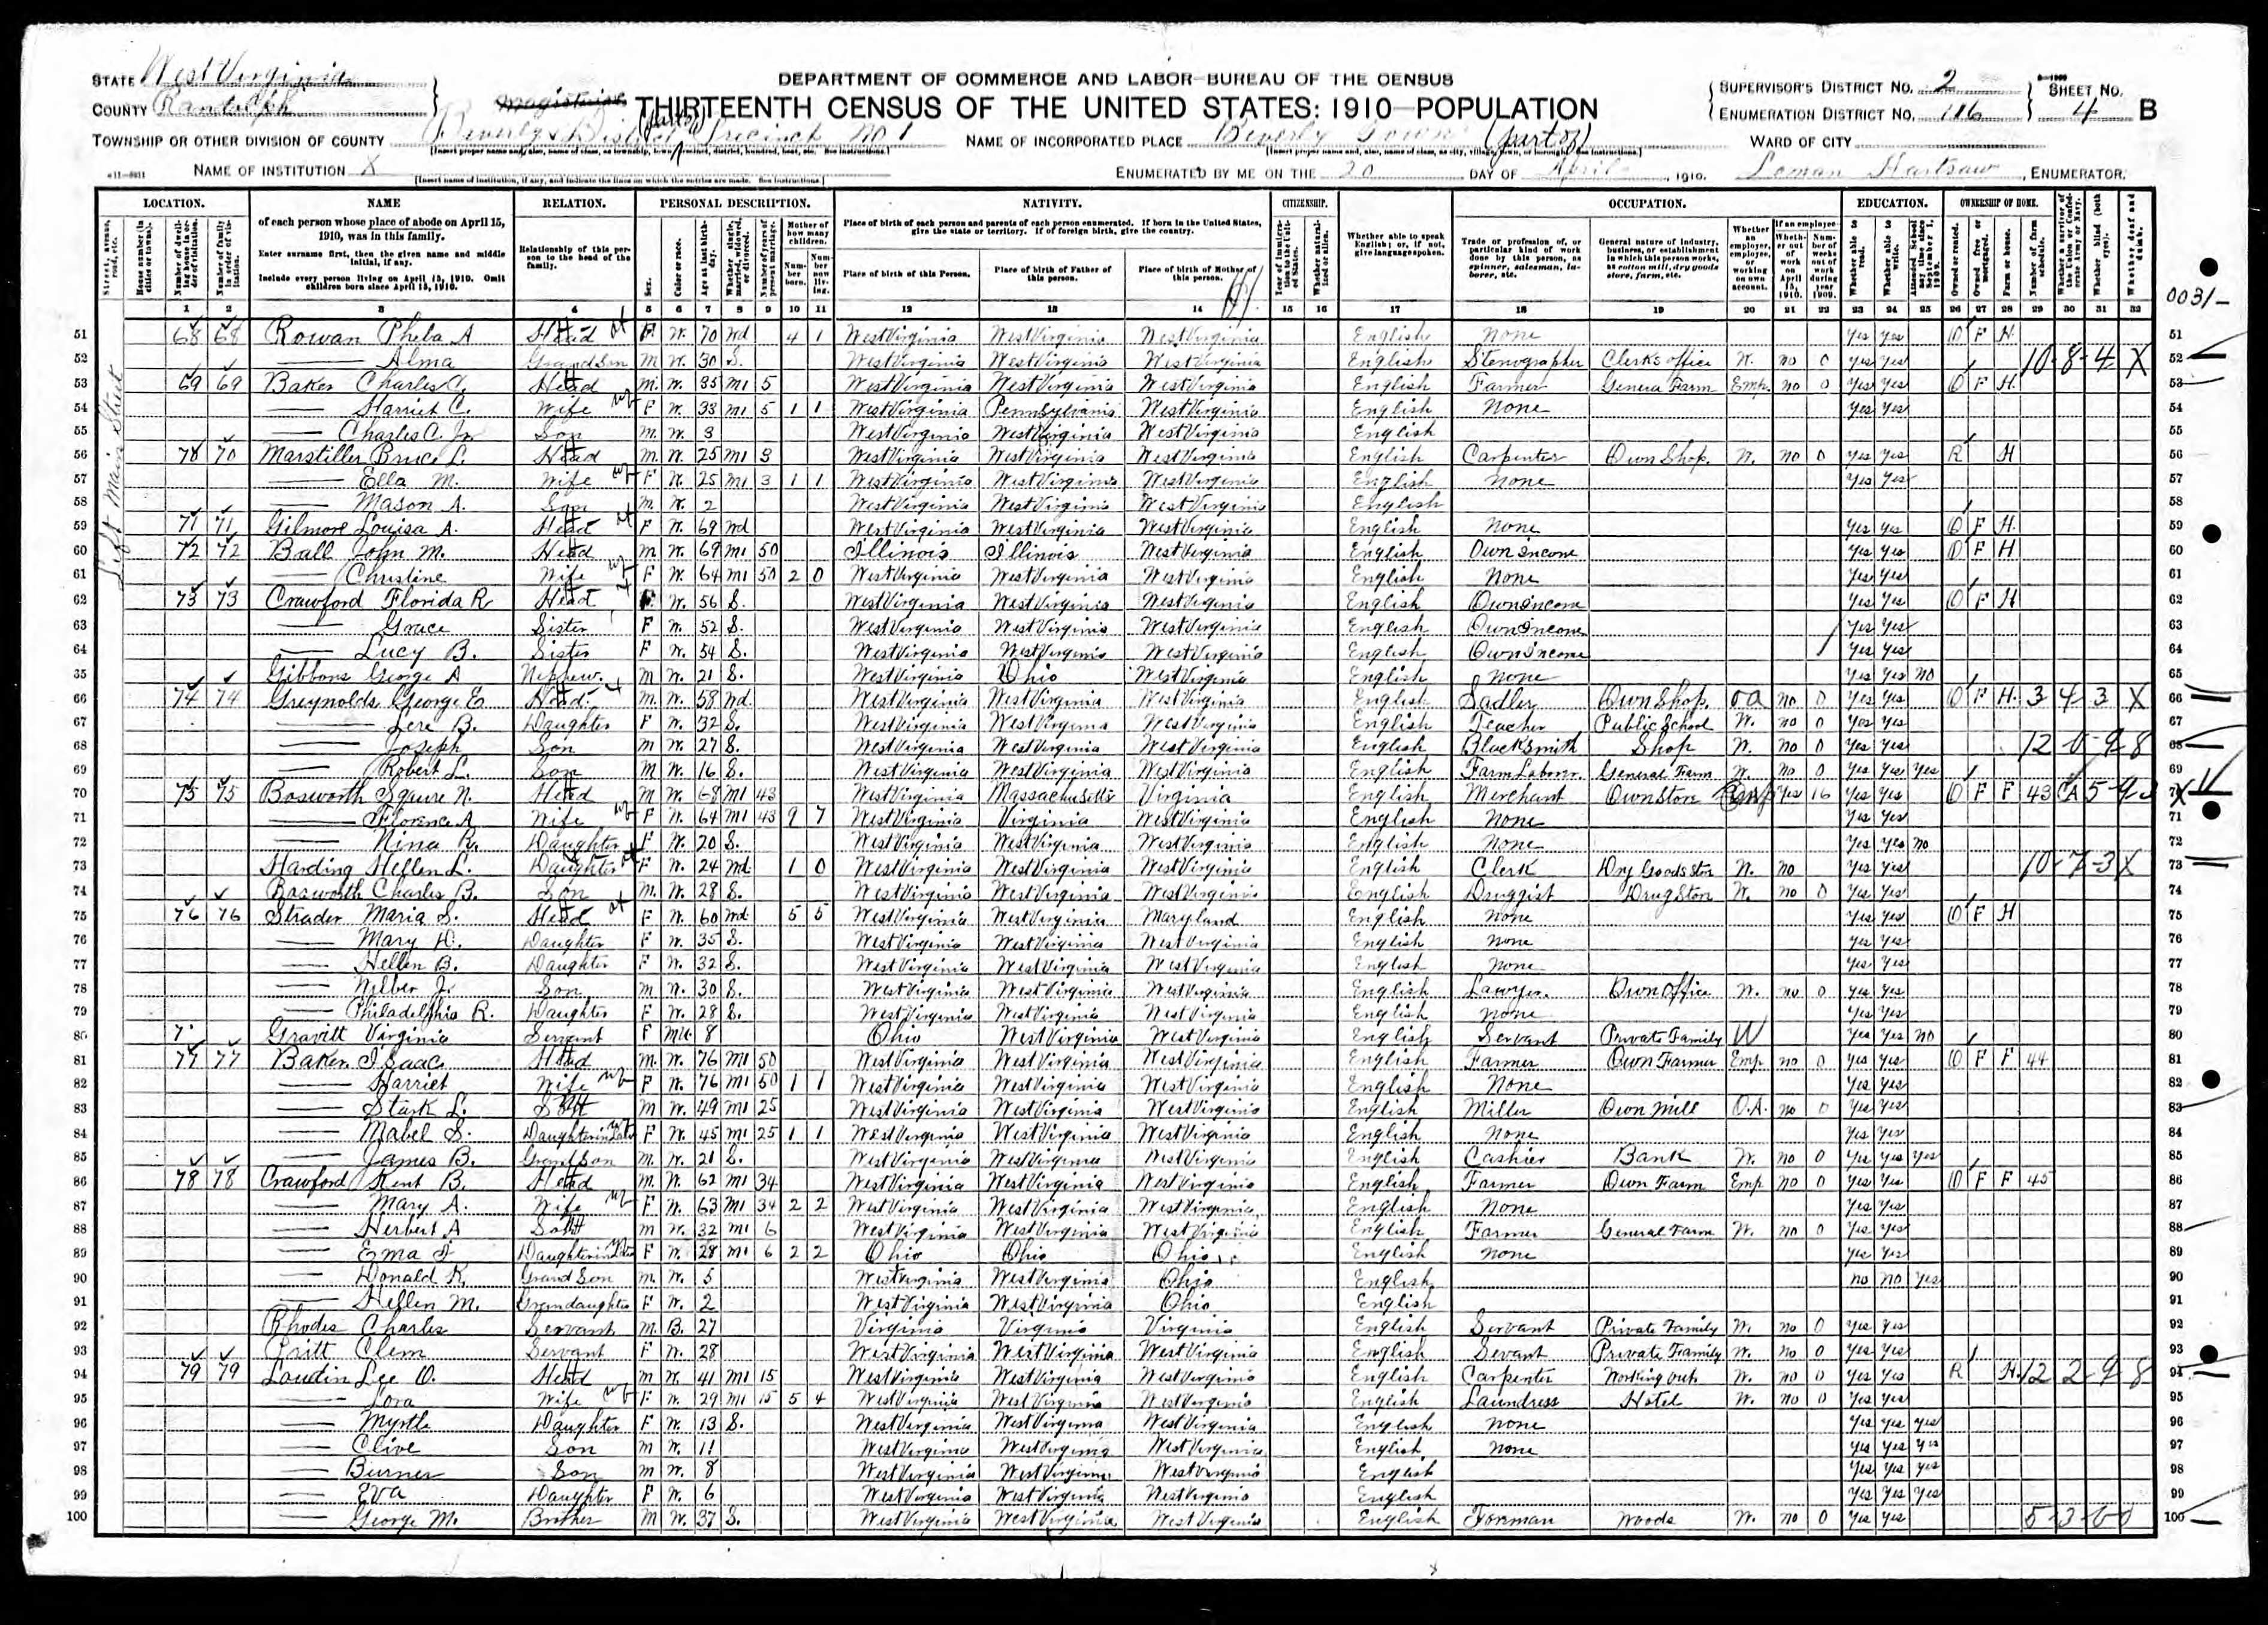 STATE West Virginia
COUNTY Randolph
DEPARTMENT OF COMMERCE AND LABOR–BUREAU OF THE CENSUS
THIRTEENTH CENSUS OF THE UNITED STATES: 1910–POPULATION
SUPERVISOR'S DISTRICT No. 2
ENUMERATION DISTRICT No. 116
SHEET No. 4 B
TOWNSHIP OR OTHER DIVISION OF COUNTY Beverly District Precinct No 1 (part of)
NAME OF INCORPORATED PLACE Beverly Town (part of)
WARD OF CITY
NAME OF INSTITUTION X
ENUMERATED BY ME ON THE 20 DAY OF April, 1910. Loman Hartsaw, ENUMERATOR.
LOCATION. NAME RELATION. PERSONAL DESCRIPTION. NATIVITY. CITIZENSHIP. OCCUPATION. EDUCATION. OWNERSHIP OF HOME.
of each person whose place of abode on April 15, 1910, was in this family.
Enter surname first, then the given name and middle initial, if any.
Include every person living on April 15, 1910. Omit children born since April 15, 1910.
Relationship of this person to the head of the family.
Place of birth of each person and parents of each person enumerated. If born in the United States, give the state or territory. If of foreign birth, give the country.
Place of birth of this Person. Place of birth of Father of this person. Place of birth of Mother of this person.
Whether able to speak English; or, if not, give language spoken.
Trade or profession of, or particular kind of work done by this person, as spinner, salesman, laborer, etc.
General nature of industry, business, or establishment in which this person works, as cotton mill, dry goods store, farm, etc.
1 2 3 4 5 6 7 8 9 10 11 12 13 14 15 16 17 18 19 20 21 22 23 24 25 26 27 28 29 30 31 32
0031-
Left Main Street
51 68 68 Rowan Pheba A Head F W. 70 Wd 4 1 West Virginia West Virginia West Virginia English None Yes Yes O F H 51
52 Alma Grand Son M W. 30 S. West Virginia West Virginia West Virginia English Stenographer Clerk's office W. no 0 Yes Yes 10-8-4 X 52
53 69 69 Baker Charles C. Head M. W. 35 M1 5 West Virginia West Virginia West Virginia English Farmer General Farm Emp. no 0 Yes Yes O F H. 53
54 Harriet C. Wife F W. 33 M1 5 1 1 West Virginia Pennsylvania West Virginia English None Yes Yes 54
55 Charles C. Jr. Son M. W. 3 West Virginia West Virginia West Virginia English 55
56 70 70 Marstiller Bruce L. Head M. W. 25 M1 3 West Virginia West Virginia West Virginia English Carpenter Own Shop. W. no 0 Yes Yes R H 56
57 Ella M. Wife F W. 25 M1 3 1 1 West Virginia West Virginia West Virginia English None Yes Yes 57
58 Mason A. Son M. W. 2 West Virginia West Virginia West Virginia English 58
59 71 71 Gilmore Louisa A. Head F W. 69 Wd West Virginia West Virginia West Virginia English None Yes Yes O F H. 59
60 72 72 Ball John M. Head M W. 69 M1 50 Illinois Illinois West Virginia English Own income Yes Yes O F H 60
61 Christine Wife F W. 64 M1 50 2 0 West Virginia West Virginia West Virginia English None Yes Yes 61
62 73 73 Crawford Florida R Head F W. 56 S. West Virginia West Virginia West Virginia English Own income Yes Yes O F H 62
63 Grace Sister F W. 52 S. West Virginia West Virginia West Virginia English Own income Yes Yes 63
64 Lucy B. Sister F W. 54 S. West Virginia West Virginia West Virginia English Own income Yes Yes 64
35 Gibbons George A Nephew. M W. 21 S. West Virginia Ohio West Virginia English None Yes Yes no 65
66 74 74 Greynolds George E Head M. W. 58 Wd. West Virginia West Virginia West Virginia English Sadler Own Shop. OA no 0 Yes Yes O F H. 3 4 3 X 66
67 Lere B. Daughter F W. 32 S. West Virginia West Virginia West Virginia English Teacher Public School W. no 0 Yes Yes 67
68 Joseph Son M W. 27 S. West Virginia West Virginia West Virginia English Blacksmith Shop W. no 0 Yes Yes 12 0-9 8 68
69 Robert L. Son M W. 16 S. West Virginia West Virginia West Virginia English Farm Laborer General Farm W. no 0 Yes Yes Yes 69
70 75 75 Bosworth Squire N. Head M W. 68 M1 43 West Virginia Massachusetts Virginia English Merchant Own Store Emp Yes 16 Yes Yes O F F 43 CA 70
71 Florence A Wife F W. 64 M1 43 9 7 West Virginia Virginia West Virginia English None Yes Yes 71
72 Nina R. Daughter F W. 20 S. West Virginia West Virginia West Virginia English None Yes Yes no 72
73 Harding Hellen L. Daughter F W. 24 Wd. 1 0 West Virginia West Virginia West Virginia English Clerk Dry Goods Store W. no Yes Yes 10-7-3 X 73
74 Bosworth Charles B. Son M. W. 28 S. West Virginia West Virginia West Virginia English Druggist Drug Store W. no 0 Yes Yes 74
75 76 76 Strader Maria S. Head F W. 60 Wd 5 5 West Virginia West Virginia Maryland English None Yes Yes O F H 75
76 Mary D. Daughter F W. 35 S. West Virginia West Virginia West Virginia English None Yes Yes 76
77 Hellen B. Daughter F W. 32 S. West Virginia West Virginia West Virginia English None Yes Yes 77
78 Wilber J. Son M W. 30 S. West Virginia West Virginia West Virginia English Lawyer. Own Office W. no 0 Yes Yes 78
79 Philadelphia R. Daughter F W. 28 S. West Virginia West Virginia West Virginia English None Yes Yes 79
80 Gravitt Virginia Servant F Mu. 8 Ohio West Virginia West Virginia English Servant Private Family W Yes Yes no 80
81 77 77 Baker Isaac Head M. W. 76 M1 50 West Virginia West Virginia West Virginia English Farmer Own Farmer Emp. no 0 Yes Yes O F F 44 81
82 Harriet Wife F W. 76 M1 50 1 1 West Virginia West Virginia West Virginia English None Yes Yes 82
83 Stark L. Son M W. 49 M1 25 West Virginia West Virginia West Virginia English Miller Own Mill O.A. no 0 Yes Yes 83
84 Mabel S. Daughter in Law F W. 45 M1 25 1 1 West Virginia West Virginia West Virginia English None Yes Yes 84
85 James B. Grand Son M. W. 21 S. West Virginia West Virginia West Virginia English Cashier Bank W. no 0 Yes Yes Yes 85
86 78 78 Crawford Kent B. Head M. W. 62 M1 34 West Virginia West Virginia West Virginia English Farmer Own Farm Emp no 0 Yes Yes O F F 45 86
87 Mary A. Wife F W. 63 M1 34 2 2 West Virginia West Virginia West Virginia English None Yes Yes 87
88 Herbert A Son M W. 32 M1 6 West Virginia West Virginia West Virginia English Farmer General Farm W. no 0 Yes Yes 88
89 Ema F Daughter in Law F W. 28 M1 6 2 2 Ohio Ohio Ohio English None Yes Yes 89
90 Donald K. Grand Son M. W. 5 West Virginia West Virginia Ohio English no no Yes 90
91 Hellen M. Grandaughter F W. 2 West Virginia West Virginia Ohio English 91
92 Rhodes Charles Servant M. B. 27 Virginia Virginia Virginia English Servant Private Family W. no 0 Yes Yes 92
93 Pritt Clem Servant F W. 28 West Virginia West Virginia West Virginia English Servant Private Family W. no 0 Yes Yes 93
94 79 79 Loudin Lee O. Head M W. 41 M1 15 West Virginia West Virginia West Virginia English Carpenter Working out W. no 0 Yes Yes R H. 12 2-9 8 94
95 Lora Wife F W. 29 M1 15 5 4 West Virginia West Virginia West Virginia English Laundress Hotel W. no 0 Yes Yes 95
96 Myrtle Daughter F W. 13 S. West Virginia West Virginia West Virginia English None Yes Yes Yes 96
97 Clive Son M W. 11 West Virginia West Virginia West Virginia English None Yes Yes Yes 97
98 Burner Son M W. 8 West Virginia West Virginia West Virginia English Yes Yes Yes 98
99 Eva Daughter F W. 6 West Virginia West Virginia West Virginia English Yes Yes Yes 99
100 George M. Brother M W. 37 S. West Virginia West Virginia West Virginia English Forman Woods W. no 0 Yes Yes 5-3-6 0 100